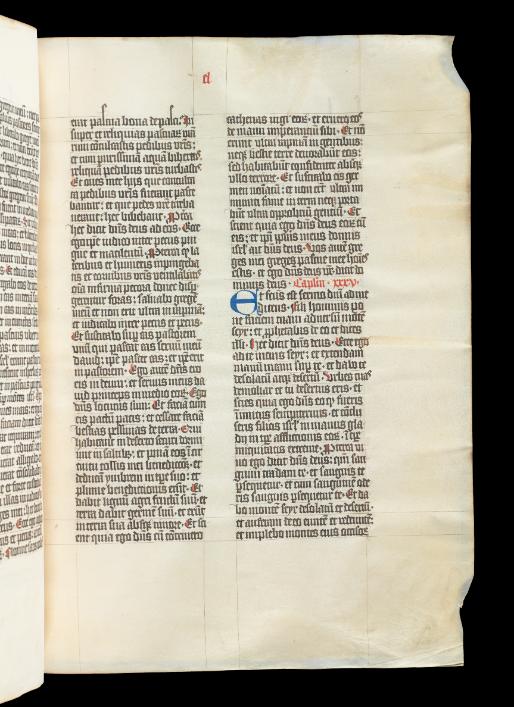 cl
erat pascua bona depasci. In
super et reliquias pascuaꝝ vr̄a
rum conculcastis pedibus vr̄is:
et cum purissimā aquā biberetis
reliquā pedibus vr̄is turbastis
Et oues mee hijs que conculca
ta pedibus vr̄is fuerant pasce
bantur: et que pedes vr̄i turba
uerant: hec bibebant. Prop̄ea
hec dicit dn̄s deus ad eos. Ecce
ego ip̄e iudico inter pecus pin
gue et macilentū. Pro eo qͥ la
teribus et humeris impingeba
tis et cornibus vr̄is ventilabatis
om̄ia infirma pecora donec dispͥ
gerentur foras: saluabo gregē
meū et non erit ultra in rapinā:
et iudicabo inter pecus et pecus.
Et suscitabo sup̄ eas pastorem
vnū qui pascat eas seruū meū
dauid: ip̄e pascet eas: et ip̄e erit
in pastorem. Ego aut̄ dn̄s ero
eis in deum: et seruus meus da
uid princeps in medio eoꝝ. Ego
dn̄s locutus sum: Et faciā cum
eis pactū pacis: et cessare faciā
bestias pessimas de terra. Et qui
habitant in deserto securi dormi
ent in saltibꝫ: et ponā eos ī cir
cuitu collis mei benedictōeꝫ: et
deducā ymbrem in tp̄e suo: et
pluuie benedictionis erūt. Et
dabit lignū agri fructū suū: et
terra dabit germē suū: et erūt
in terra sua absqꝫ timore. Et sci
ent quia ego dn̄s cū cōtriuero
cathenas iugi eoꝝ: et eruero eos
de manu imperantiū sibi. Et nō
erunt ultra in rapinā in gentibus:
neqꝫ bestie terre deuorabūt eos:
sed habitabūt confidenter absqꝫ
ullo terrore. Et suscitabo eis ger
men noīatū: et non erūt ultra im
minuti fame in terra neqꝫ porta
būt ultra opprobriū gentiū. Et
scient quia ego dn̄s deus eoꝝ cū
eis: et ip̄i pp̄l̄s meus domus
isrl̄ ait dn̄s deus. Vos aut̄ gre
ges mei greges pascue mee hoīes
estis: et ego dn̄s deus vr̄: dicit do
minus deus. Caplm̄ xxxv.
Et factus est sermo dn̄i ad me
dicens. Fili hominis po
ne faciem tuam aduersū mōtē
seyr: et prophetabis de eo et dices
illi. Hec dicit dn̄s deus. Ecce ego
ad te mons seyr: et extendam
manū meam sup̄ te: et dabo te
desolatū atqꝫ desertū. Vrbes tuas
demoliar et tu desertus eris: et
scies quia ego dn̄s eo qͥ fueris
inimicus sempiternus: et cōclu
seris filios isrl̄ in manus gla
dij in tp̄e afflictionis eoꝝ: ī tp̄e
iniquitatis extreme. Prop̄ea vi
uo ego dicit dn̄s deus: qm̄ san
guini tradam te: et sanguis te
ꝑsequetur: et cum sanguinē ode
ris sanguis ꝑsequetur te. Et da
bo montē seyr desolatū et desertū:
et auferam de eo euntē et redeuntē:
et implebo montes eius occisoꝝ